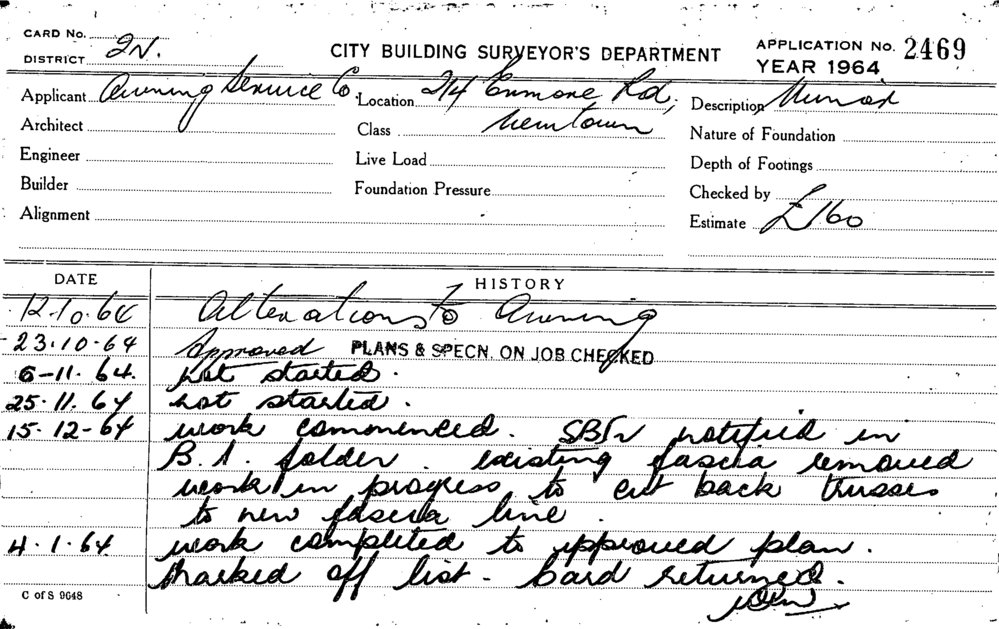 CARD No.
DISTRICT 2N.
CITY BUILDING SURVEYOR'S DEPARTMENT
APPLICATION No. 2469
YEAR 1964
Applicant Awning Service Co. Location 214 Enmore Rd, Description
Architect Class Newtown Nature of Foundation
Engineer Live Load Depth of Footings
Builder Foundation Pressure Checked by
Alignment Estimate £160
DATE HISTORY
12.10.64 Alterations to Awning
23.10.64 Approved PLANS & SPECN. ON JOB CHECKED
6-11.64. not started.
25.11.64 not started.
15.12-64 work commenced. notified in
B.A. folder. existing fascia removed
work in progress to cut back trusses
to new fascia line.
4.1.64 work completed to approved plan.
Marked off list - Card returned.
C of S 9648